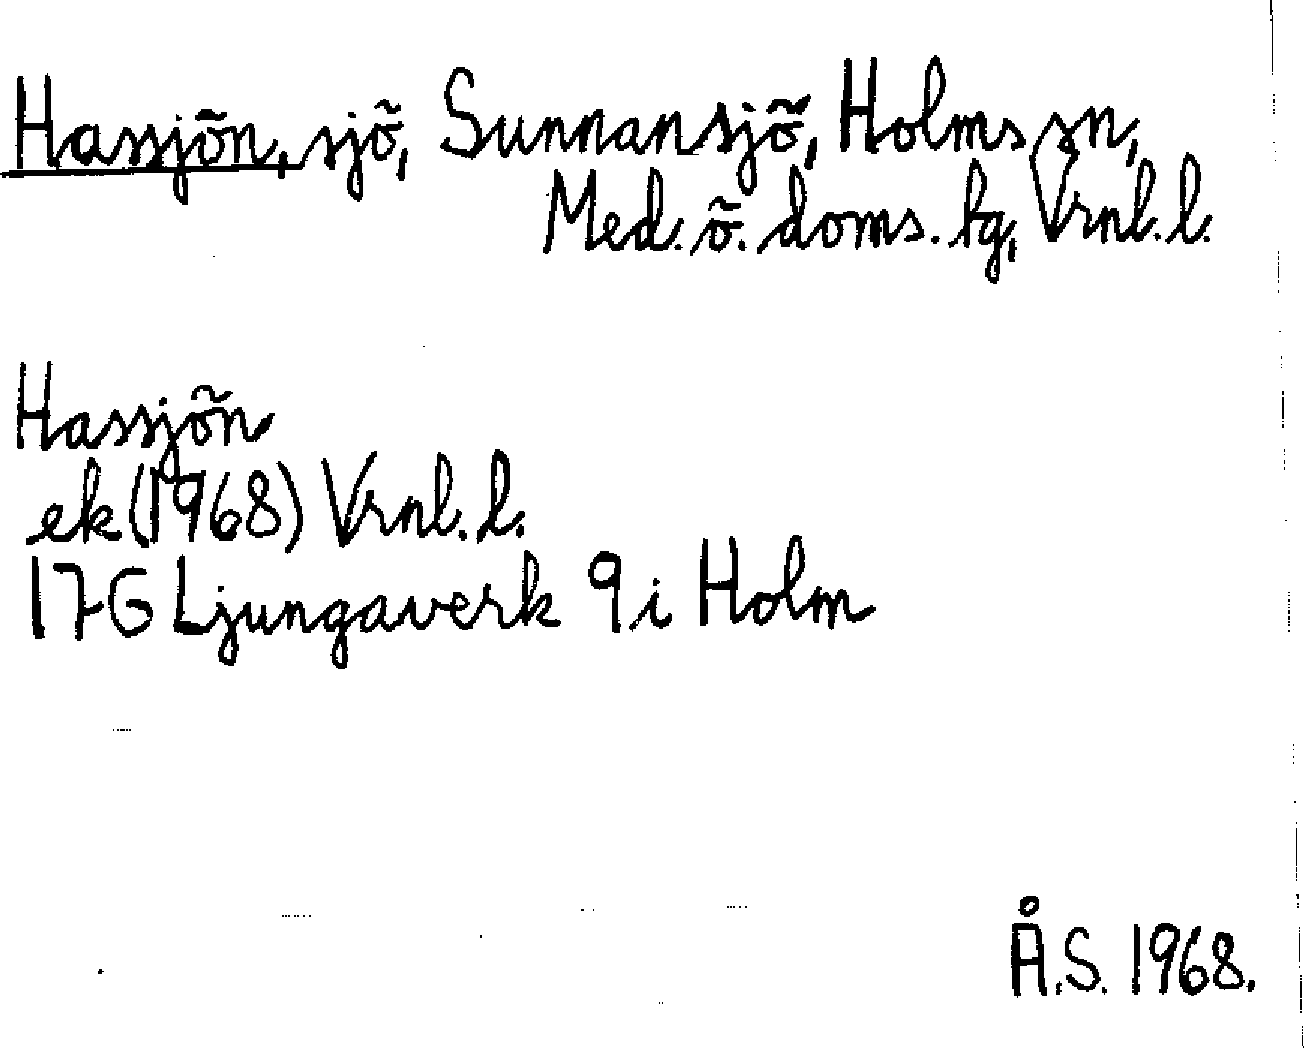 Hassjön, sjö, Sunnansjö, Holms sn,
Med. ö. doms. tg, Vrnl. l.
Hassjön
ek (1968) Vrnl. l.
17G Ljungaverk 9i Holm
Å.S. 1968.